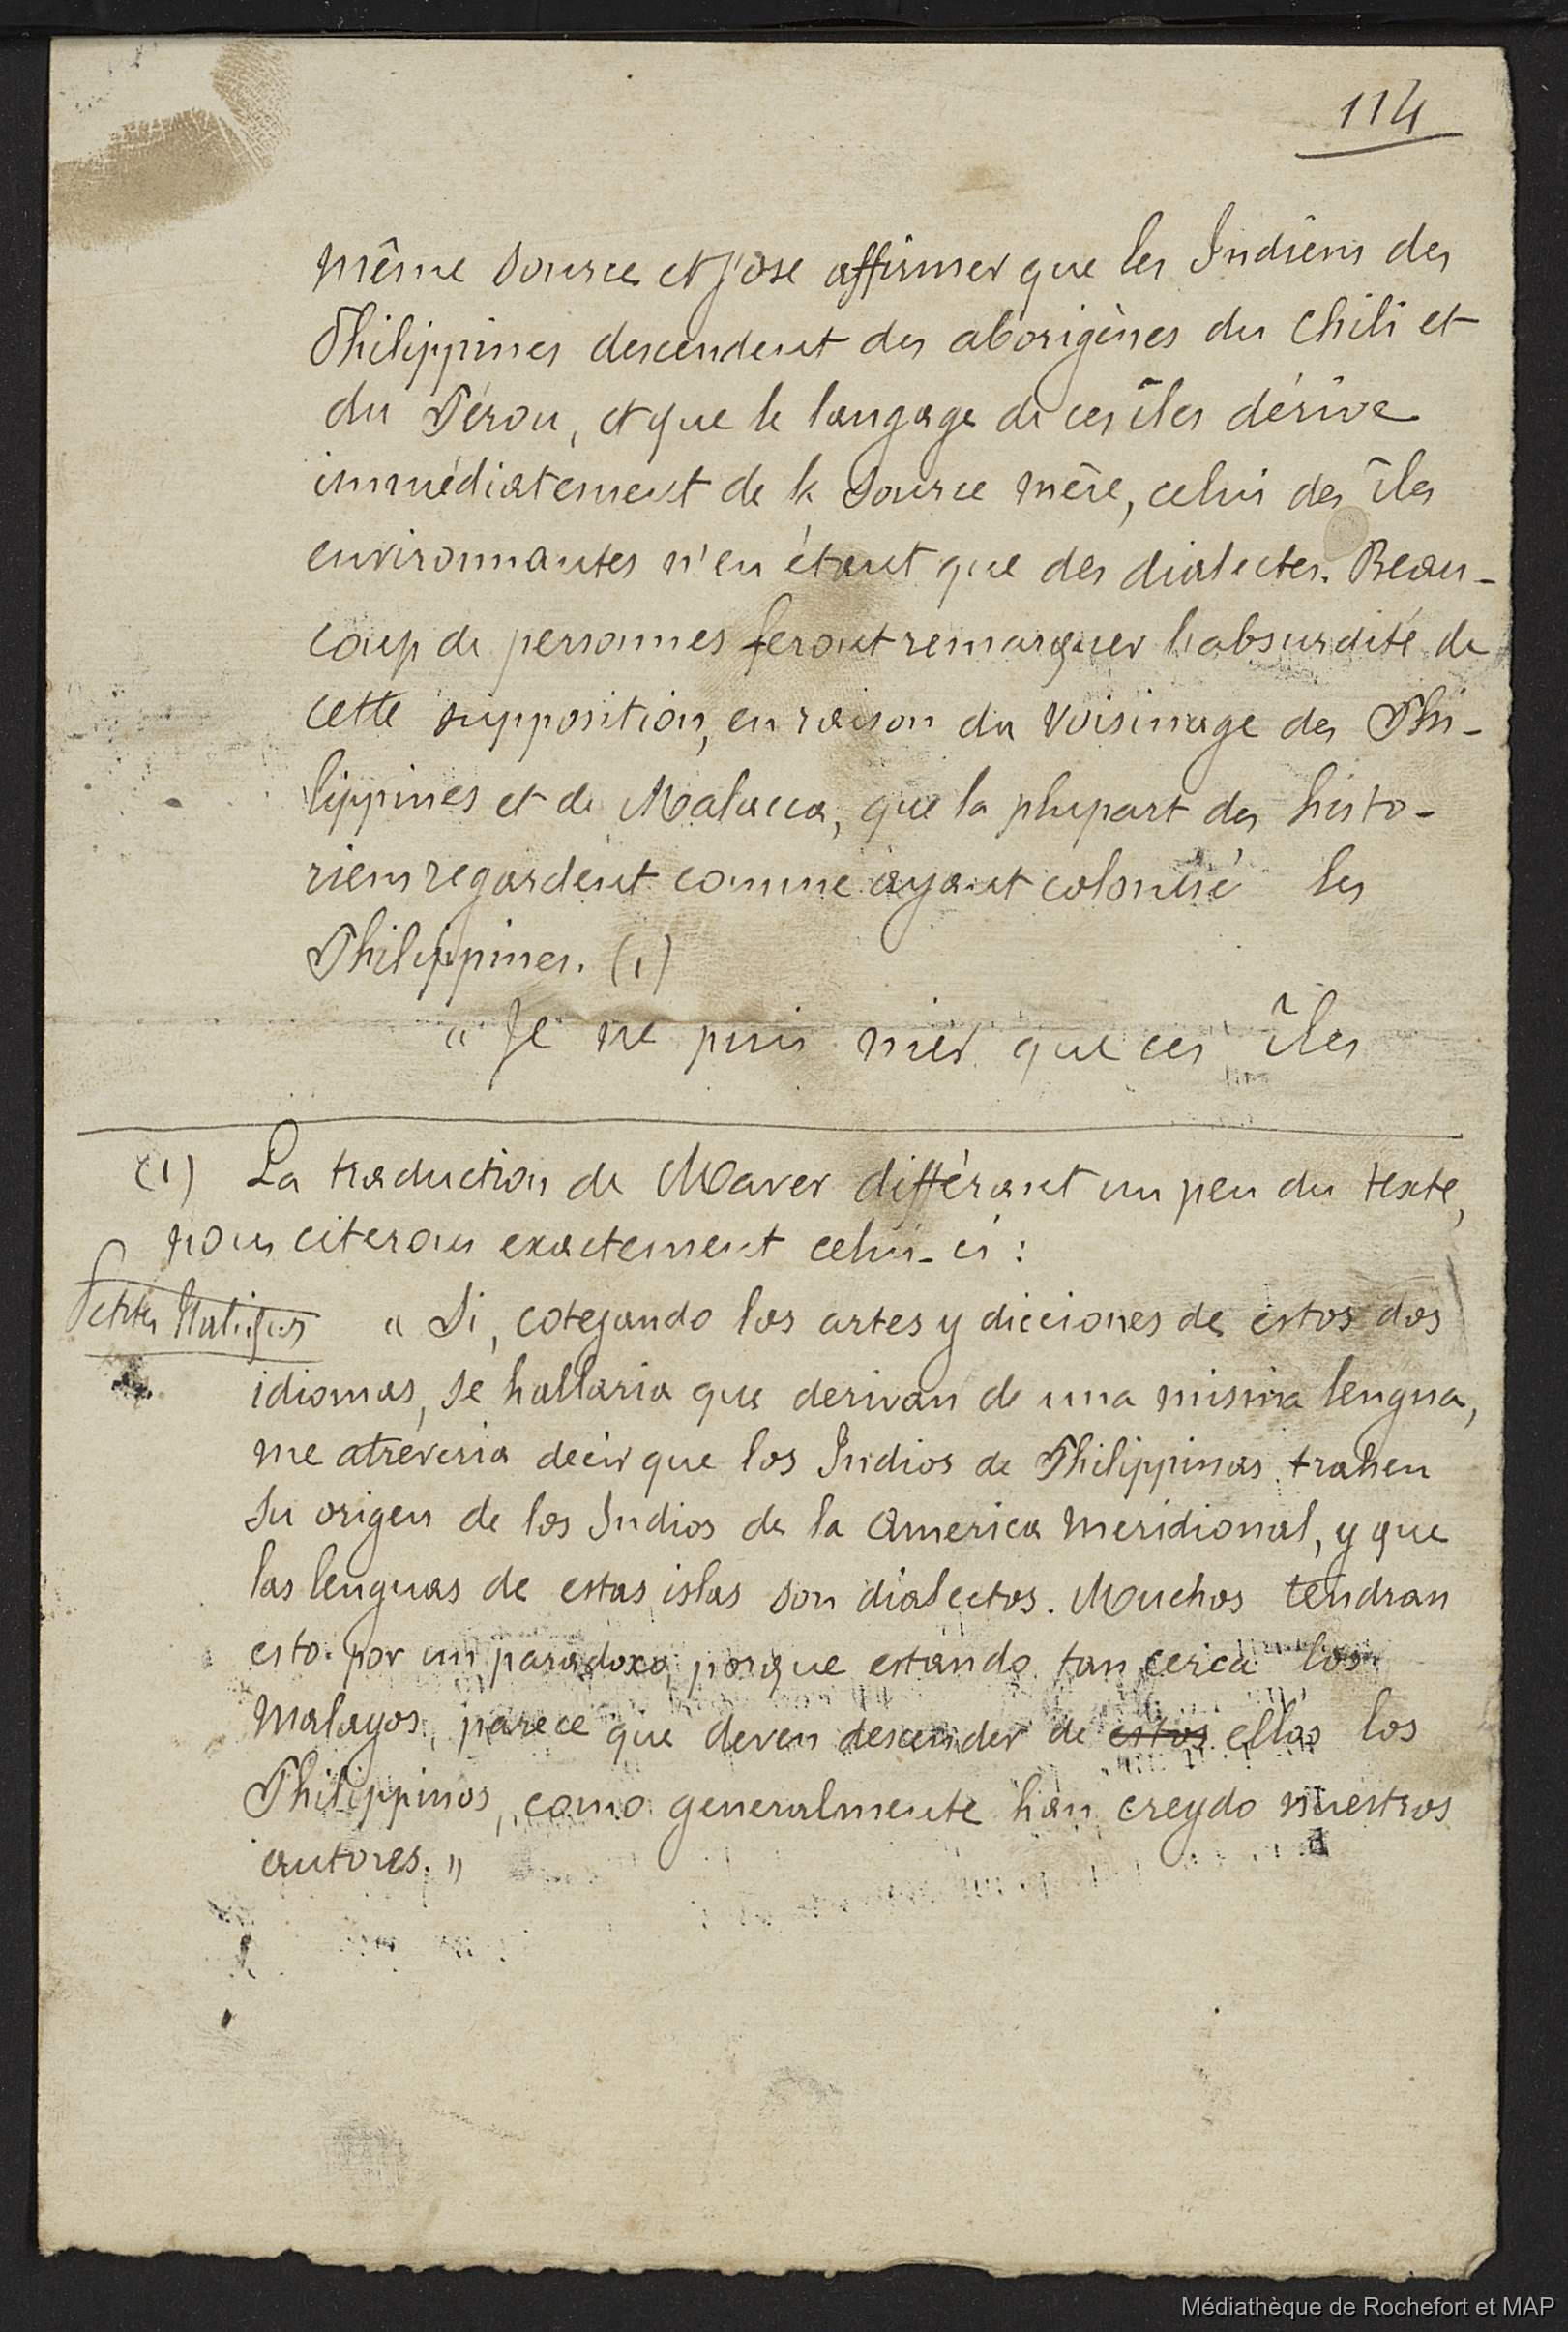 114
même source et j'ose affirmer que les Indiens des
Philippines descendent des aborigènes du Chili et
du Pérou, et que le langage de ces îles dérive
immédiatement de la source mère, celui des îles
environnantes n'en étant que des dialectes. Beau-
coup de personnes feront remarquer l'absurdité de
cette supposition, en raison du voisinage des Phi-
lippines et de Malacca, que la plupart des histo-
riens regardent comme ayant colonisé les
Philippines. (1)
« Je ne puis nier que ces îles
(1) La traduction de Maver différant un peu du texte,
nous citerons exactement celui-ci :
Petites Italiques
« Si, cotejando las artes y dicciones de estos dos
idiomas, se hallaria que derivan de una misma lengua,
me atreveria decir que los Indios de Philippinas trahen
su origen de los Indios de la America meridional, y que
las lenguas de estas islas son dialectos. Muchos tendran
esto por un paradoxo, porque estando tan cerca los
Malayos, parece que deven descender de estos ellos los
Philippinos, como generalmente han creydo nuestros
autores. »
Médiathèque de Rochefort et MAP